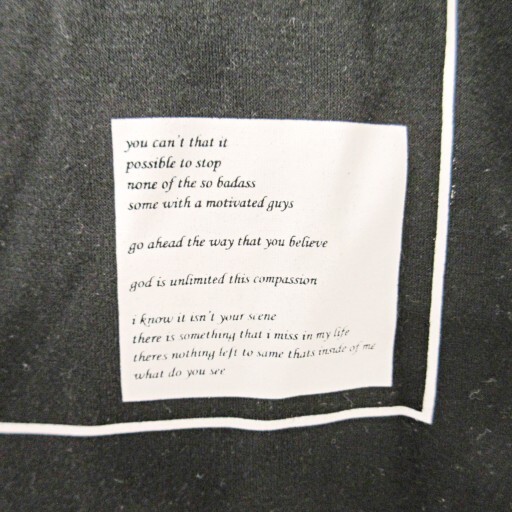 you can't that it
possible to stop
none of the so badass
some with a motivated guys
go ahead the way that you believe
god is unlimited this compassion
i know it isn't your scene
there is something that i miss in my life
theres nothing left to same thats inside of me
what do you see